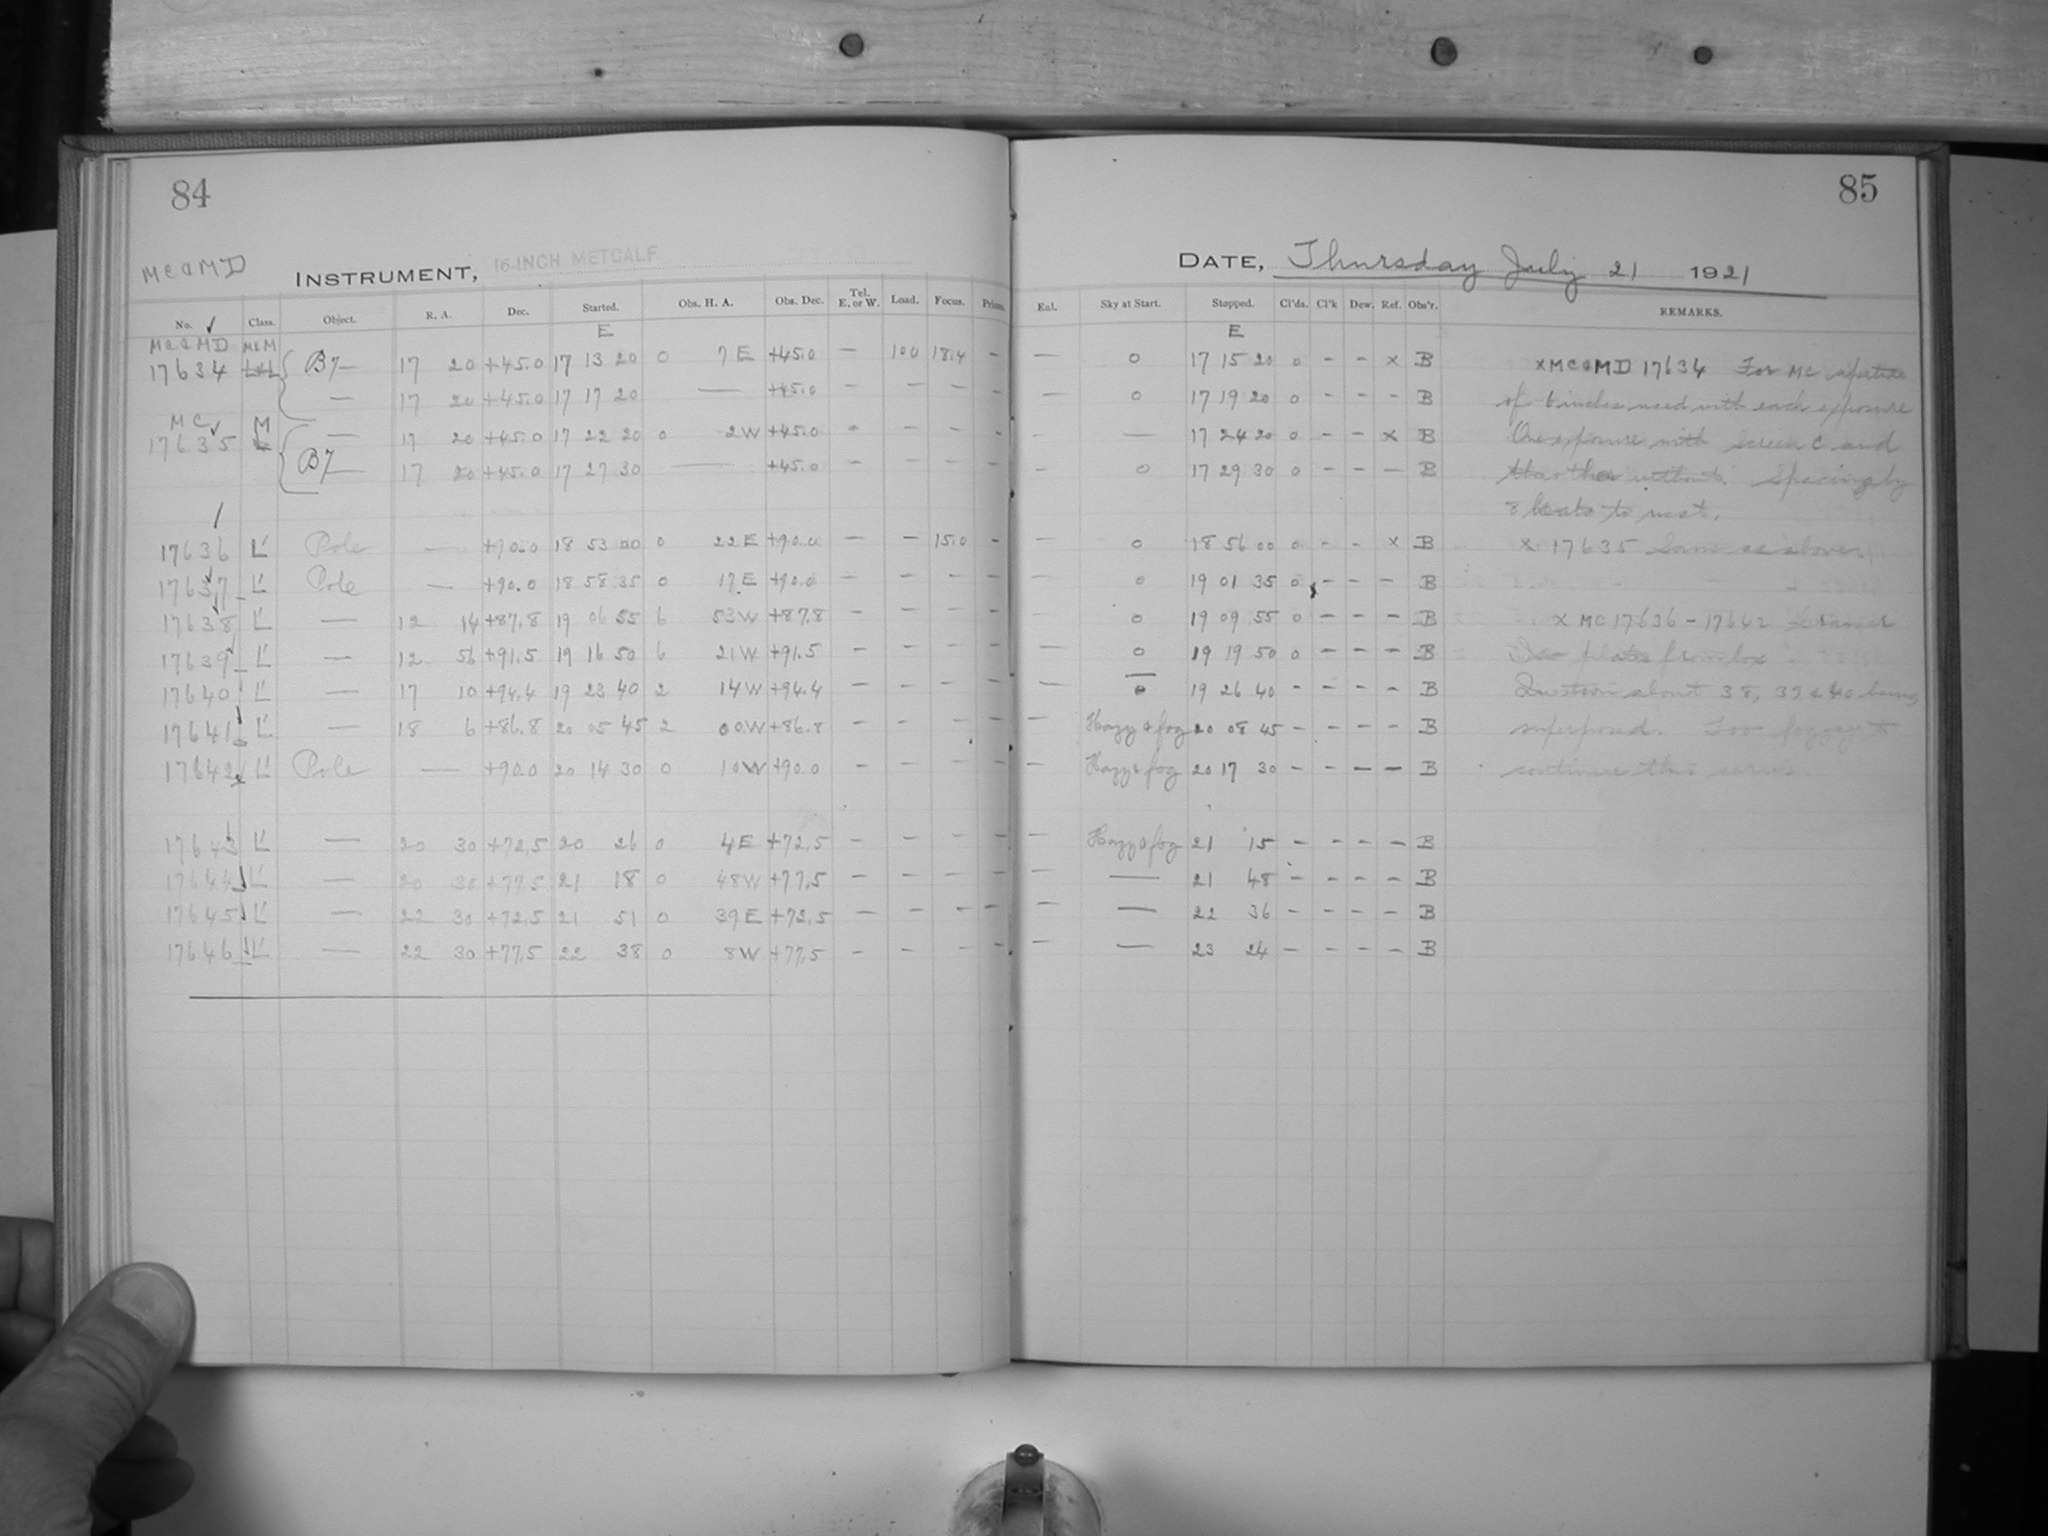 84
MC & MD INSTRUMENT, 16-INCH METCALF
No. Class. Object. R. A. Dec. Started. Obs. H. A. Obs. Dec. Tel. E. or W. Load. Focus. Prism.
E
MC & MD M&M
17634 B7 — 17 20 +45.0 17 13 20 0 7 E +45.0 — 100 18.4 —
— 17 20 +45.0 17 17 20 — +45.0 — — — —
MC M
17635 — 17 20 +45.0 17 22 20 0 2W +45.0 - — — —
B7 — 17 20 +45.0 17 27 30 — +45.0 — — — —
17636 L' Pole — +90.0 18 53 00 0 22E +90.0 — — 15.0 -
17637 L' Pole — +90.0 18 58 35 0 17E +90.0 — — — —
17638 L' — 12 14 +87.8 19 06 55 6 53W +87.8 — — — —
17639 L' — 12 56 +91.5 19 16 50 6 21W +91.5 — — — —
17640 L' — 17 10 +94.4 19 23 40 2 14W +94.4 — — — —
17641 L' — 18 6 +86.8 20 05 45 2 00W +86.8 — — — —
17642 L' Pole — +90.0 20 14 30 0 10W +90.0 — — — —
17643 L' — 20 30 +72.5 20 26 0 4E +72.5 — — — —
17644 L' — 20 30 +77.5 21 18 0 48W +77.5 — — — —
17645 L' — 22 30 +72.5 21 51 0 39E +72.5 — — — —
17646 L' — 22 30 +77.5 22 38 0 8W +77.5 — — — —
85
DATE, Thursday July 21 1921
Enl. Sky at Start. Stopped. Cl'ds. Cl'k Dew. Ref. Obs'r. REMARKS.
E
— 0 17 15 20 0 - - x B x MC & MD 17634 For MC aperture
— 0 17 19 20 0 - - - B of 6 inches used with each exposure
— — 17 24 20 0 - - x B One exposure with Screen C and
- 0 17 29 30 0 - - - B the other without. Spacing by
8 beats to west.
— 0 18 56 00 0 - - x B x 17635 Same as above.
— 0 19 01 35 0 - - - B
0 19 09 55 0 - - - B x MC 17636 - 17642
— 0 19 19 50 0 - - - B plates from box
— 0 19 26 40 - - - - B Question about 38, 39 & 40 being
— Hazy & fog 20 08 45 - - - - B superposed. Too foggy to
— Hazy & fog 20 17 30 - - - - B continue this series.
— Hazy & fog 21 15 - - - - B
— — 21 48 - - - - B
— — 22 36 - - - - B
— — 23 24 - - - - B